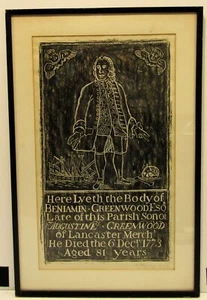 Here Lyeth the Body of
BENJAMIN GREENWOOD ESQ
Late of this Parish Son of
AUGUSTINE GREENWOOD
of Lancaster Merch^t
He Died the 6 Dec^r 1773
Aged 81 years